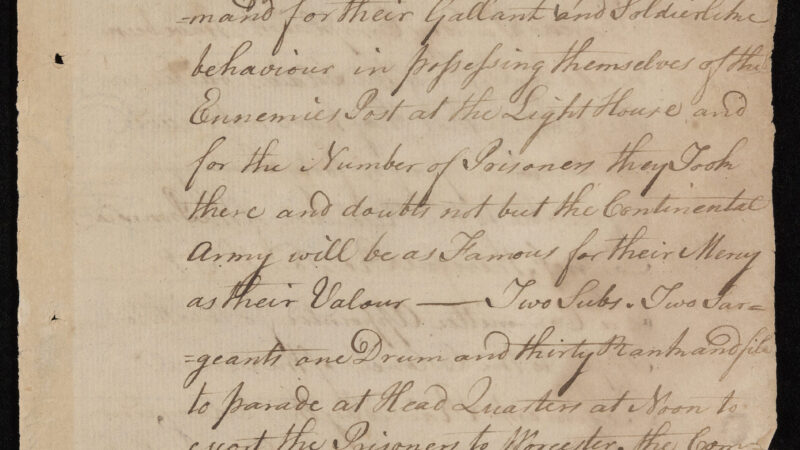 =mand for their Gallant and Soldierlike
behaviour in possessing themselves of the
Ennemies Post at the Light House and
for the Number of Prisoners they Took
there and doubts not but the Continental
Army will be as Famous for their Mercy
as their Valour — Two Subs. Two Sar=
=geants one Drum and thirty Rank and file
to parade at Head Quarters at Noon to
escort the Prisoners to Worcester. the Com=